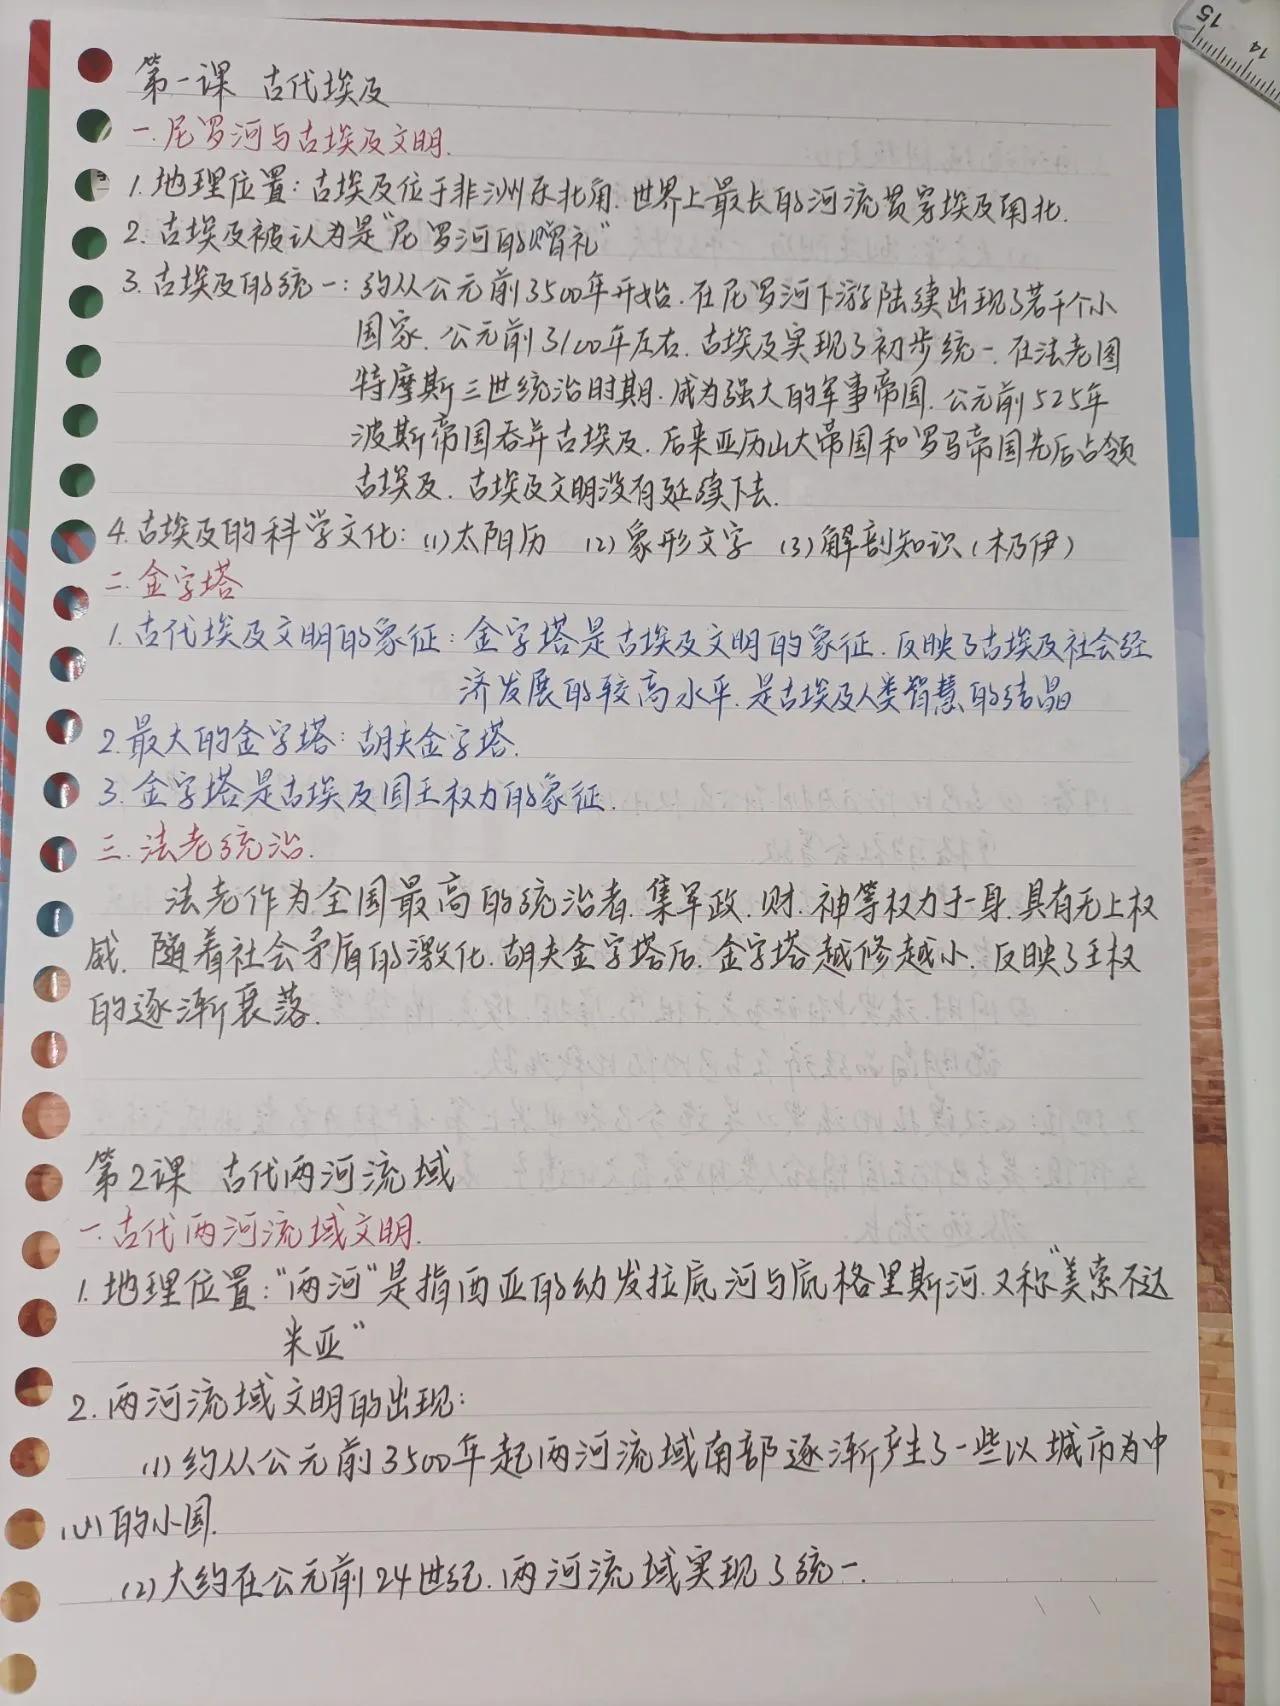 第一课 古代埃及
一.尼罗河与古埃及文明.
1.地理位置:古埃及位于非洲东北角.世界上最长的河流贯穿埃及南北.
2.古埃及被认为是"尼罗河的赠礼"
3.古埃及的统一:约从公元前3500年开始.在尼罗河下游陆续出现了若干个小
国家.公元前3100年左右.古埃及实现了初步统一.在法老图
特摩斯三世统治时期.成为强大的军事帝国.公元前525年
波斯帝国吞并古埃及.后来亚历山大帝国和罗马帝国先后占领
古埃及.古埃及文明没有延续下去.
4.古埃及的科学文化:(1)太阳历 (2)象形文字 (3)解剖知识(木乃伊)
二.金字塔
1.古代埃及文明的象征:金字塔是古埃及文明的象征.反映了古埃及社会经
济发展的较高水平.是古埃及人类智慧的结晶
2.最大的金字塔:胡夫金字塔.
3.金字塔是古埃及国王权力的象征.
三.法老统治.
法老作为全国最高的统治者.集军政.财.神等权力于一身.具有无上权
威.随着社会矛盾的激化.胡夫金字塔后.金字塔越修越小.反映了王权
的逐渐衰落.
第2课 古代两河流域
一.古代两河流域文明.
1.地理位置:"两河"是指西亚的幼发拉底河与底格里斯河.又称"美索不达
米亚"
2.两河流域文明的出现:
(1)约从公元前3500年起两河流域南部逐渐产生了一些以城市为中
心的小国.
(2)大约在公元前24世纪.两河流域实现了统一.
15
14